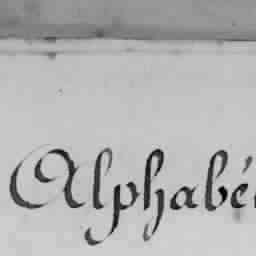 Alphabé